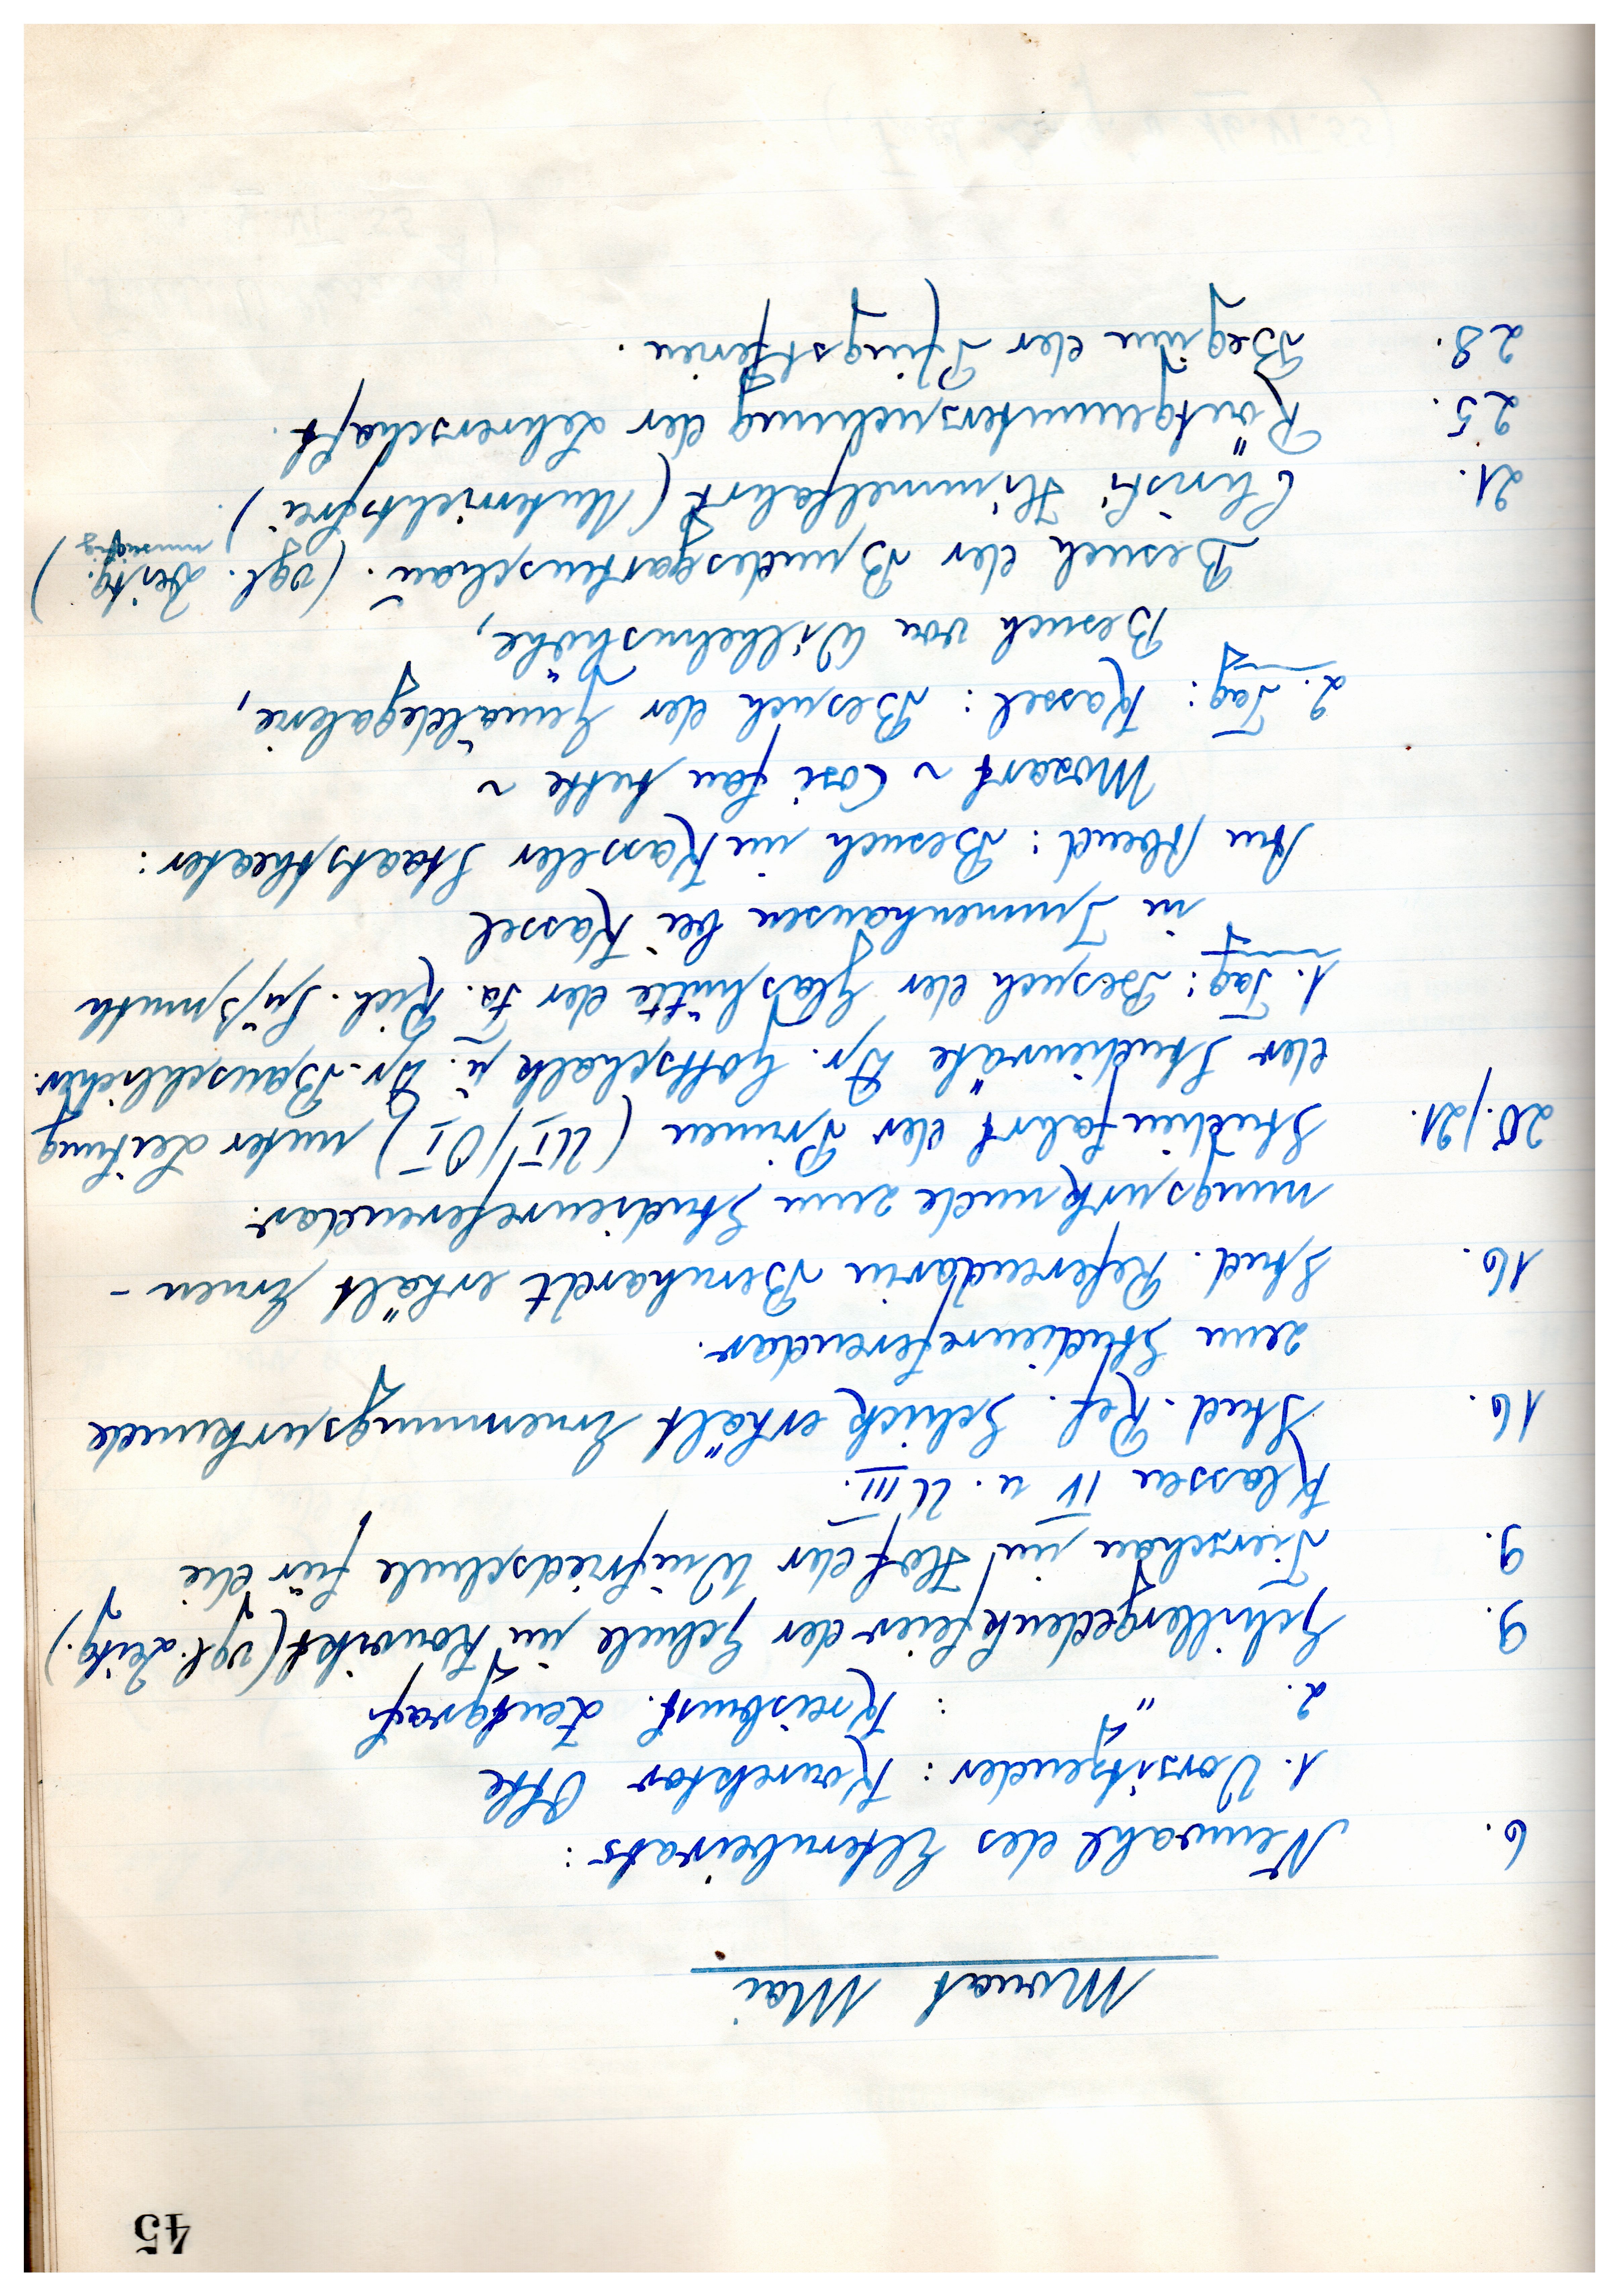 45
Monat Mai
6. Neuwahl des Elternbeirats:
1. Vorsitzender: Konrektor Otte
2. " : Kreisbmst. Lentgraf
9. Schillergedenkfeier der Schule im Konvikt (vgl. Zeitg.)
9. Tierschau im Hof der Winfriedschule für die
Klassen IV u. UIII.
16. Stud. Ref. Schick erhält Ernennungsurkunde
zum Studienreferendar.
16. Stud. Referendarin Bernhardt erhält Ernen-
nungsurkunde zum Studienreferendar.
20./21. Studienfahrt der Primen (UI/OI) unter Leitung
der Studienräte Dr. Gottschalk u. Dr. Bauschlicher.
1. Tag: Besuch der Glashütte der Fa. Rich. Süßmuth
in Immenhausen bei Kassel
Am Abend: Besuch im Kasseler Staatstheater:
Mozart ~ Cosi fan tutte ~
2. Tag: Kassel: Besuch der Gemäldegalerie,
Besuch von Wilhelmshöhe,
Besuch der Bundesgartenschau. (vgl. Zeitg.)
21. Christi Himmelfahrt (Unterrichtsfrei).
25. Röntgenuntersuchung der Lehrerschaft.
28. Beginn der Pfingstferien.